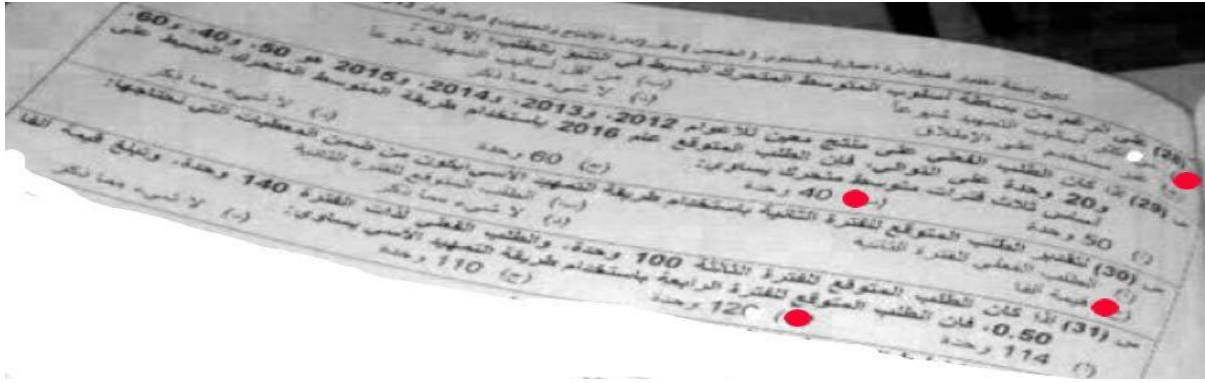 س (28) على الرغم من بساطة أسلوب المتوسط المتحرك البسيط في التنبؤ بالطلب، إلا أنه:
أكثر أساليب التمهيد شيوعاً (ب) من أقل أساليب التمهيد شيوعاً
(ج) غير مستخدم على الإطلاق (د) لا شيء مما ذكر
س (29) إذا كان الطلب الفعلي على منتج معين للأعوام 2012، و2013، و2014، و2015 هو 50، و40، و60،
و20 وحدة على التوالي، فإن الطلب المتوقع عام 2016 باستخدام طريقة المتوسط المتحرك البسيط على
أساس ثلاث فترات متوسط متحرك يساوي:
(أ) 50 وحدة 40 وحدة (ج) 60 وحدة (د) لا شيء مما ذكر
س (30) لتقدير الطلب المتوقع للفترة الثانية باستخدام طريقة التمهيد الأسي يكون من ضمن المعطيات التي نحتاجها:
(أ) الطلب الفعلي للفترة الثانية (ب) الطلب المتوقع للفترة الثانية
(ج) قيمة ألفا (د) لا شيء مما ذكر
س (31) إذا كان الطلب المتوقع للفترة الثالثة 100 وحدة، والطلب الفعلي لذات الفترة 140 وحدة، وتبلغ قيمة ألفا
0.50، فإن الطلب المتوقع للفترة الرابعة باستخدام طريقة التمهيد الأسي يساوي:
(أ) 114 وحدة 120 وحدة (ج) 110 وحدة (د) لا شيء مما ذكر